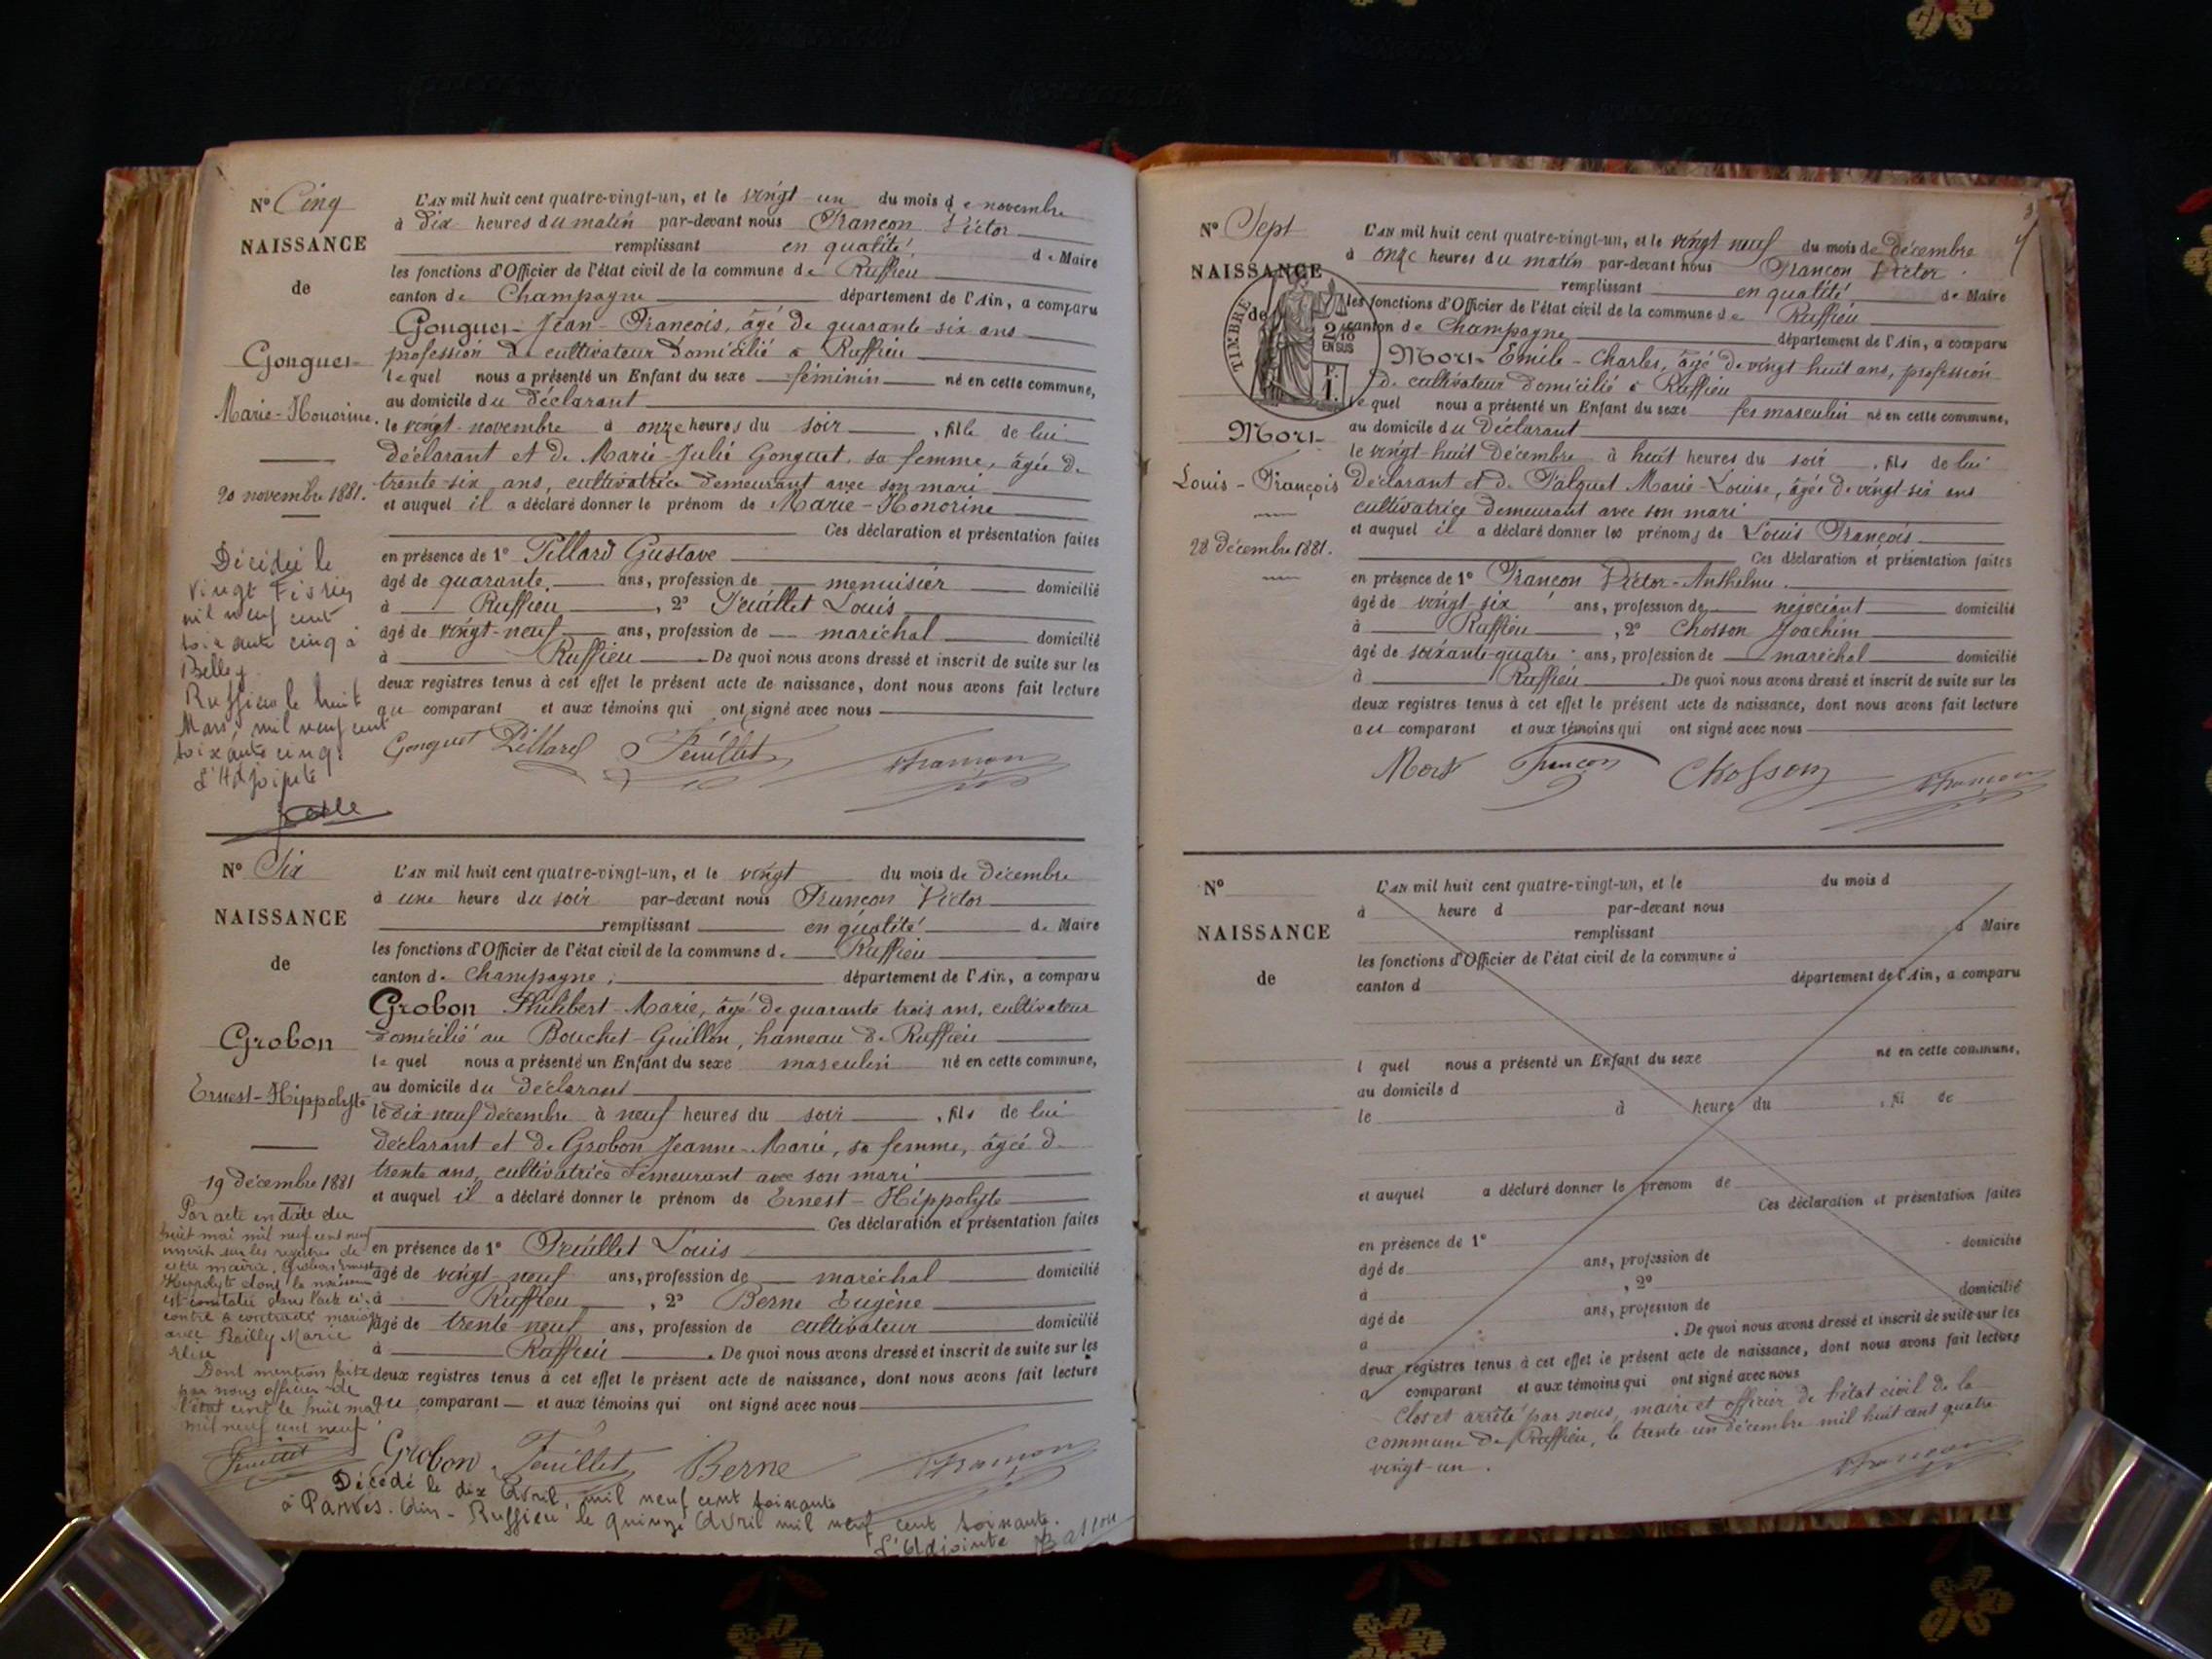 N° Cinq
NAISSANCE
de
Gonguet
Marie-Honorine.
20 novembre 1881.
Décédée le
vingt Février
mil neuf cent
soixante cinq à
Belley.
Ruffieu le huit
Mars, mil neuf cent
soixante cinq.
L'Adjointe
L'AN mil huit cent quatre-vingt-un, et le vingt-un du mois de novembre
à dix heures du matin par-devant nous Francon Victor
remplissant en qualité de Maire
les fonctions d'Officier de l'état civil de la commune de Ruffieu
canton de Champagne département de l'Ain, a comparu
Gonguet Jean-François, âgé de quarante-six ans
profession de cultivateur domicilié à Ruffieu
lequel nous a présenté un Enfant du sexe féminin né en cette commune,
au domicile du déclarant
le vingt novembre à onze heures du soir, fille de lui
déclarant et de Marie-Julie Gonguet, sa femme, âgée de
trente-six ans, cultivatrice demeurant avec son mari
et auquel il a déclaré donner le prénom de Marie-Honorine
Ces déclaration et présentation faites
en présence de 1° Pillard Gustave
âgé de quarante ans, profession de menuisier domicilié
à Ruffieu, 2° Feuillet Louis
âgé de vingt-neuf ans, profession de maréchal domicilié
à Ruffieu. De quoi nous avons dressé et inscrit de suite sur les
deux registres tenus à cet effet le présent acte de naissance, dont nous avons fait lecture
au comparant et aux témoins qui ont signé avec nous
Gonguet Pillard Feuillet Francon
N° Six
NAISSANCE
de
Grobon
Ernest-Hippolyte
19 décembre 1881
Par acte en date du
huit mai mil neuf cent neuf
inscrit sur les registres de
cette mairie, Grobon Ernest
Hippolyte dont la naissance
est constatée dans l'acte ci-
contre a contracté mariage
avec Reilly Marie
Elise
Dont mention faite
par nous officier de
l'état civil le huit mai
mil neuf cent neuf
Feuillet
L'AN mil huit cent quatre-vingt-un, et le vingt du mois de décembre
à une heure du soir par-devant nous Francon Victor
remplissant en qualité de Maire
les fonctions d'Officier de l'état civil de la commune de Ruffieu
canton de Champagne, département de l'Ain, a comparu
Grobon Philibert-Marie, âgé de quarante trois ans, cultivateur
domicilié au Bouchet-Guillon, hameau de Ruffieu
lequel nous a présenté un Enfant du sexe masculin né en cette commune,
au domicile du déclarant
le dix-neuf décembre à neuf heures du soir, fils de lui
déclarant et de Grobon Jeanne-Marie, sa femme, âgée de
trente ans, cultivatrice demeurant avec son mari
et auquel il a déclaré donner le prénom de Ernest-Hippolyte
Ces déclaration et présentation faites
en présence de 1° Feuillet Louis
âgé de vingt-neuf ans, profession de maréchal domicilié
à Ruffieu, 2° Berne Eugène
âgé de trente-neuf ans, profession de cultivateur domicilié
à Ruffieu. De quoi nous avons dressé et inscrit de suite sur les
deux registres tenus à cet effet le présent acte de naissance, dont nous avons fait lecture
au comparant et aux témoins qui ont signé avec nous
Grobon Feuillet Berne Francon
Décédé le dix Avril, mil neuf cent soixante
à Parves. Ain - Ruffieu le quinze Avril mil neuf cent soixante.
L'Adjointe
N° Sept
NAISSANCE
de
TIMBRE
2/10
EN SUS
F.
1.
Mort
Louis-François
28 décembre 1881.
L'AN mil huit cent quatre-vingt-un, et le vingt neuf du mois de décembre
à onze heures du matin par-devant nous Francon Victor
remplissant en qualité de Maire
les fonctions d'Officier de l'état civil de la commune de Ruffieu
canton de Champagne département de l'Ain, a comparu
Mort Emile-Charles, âgé de vingt huit ans, profession
de cultivateur domicilié à Ruffieu
lequel nous a présenté un Enfant du sexe fes masculin né en cette commune,
au domicile du déclarant
le vingt-huit décembre à huit heures du soir, fils de lui
déclarant et de Falquet Marie-Louise, âgée de vingt six ans
cultivatrice demeurant avec son mari
et auquel il a déclaré donner les prénoms de Louis François
Ces déclaration et présentation faites
en présence de 1° Francon Victor-Anthelme.
âgé de vingt-six ans, profession de négociant domicilié
à Ruffieu, 2° Chosson Joachim
âgé de soixante-quatre ans, profession de maréchal domicilié
à Ruffieu. De quoi nous avons dressé et inscrit de suite sur les
deux registres tenus à cet effet le présent acte de naissance, dont nous avons fait lecture
au comparant et aux témoins qui ont signé avec nous
Mort Francon Chosson Francon
N°
NAISSANCE
de
L'AN mil huit cent quatre-vingt-un, et le du mois d
à heure d par-devant nous
remplissant d Maire
les fonctions d'Officier de l'état civil de la commune d
canton d département de l'Ain, a comparu
l quel nous a présenté un Enfant du sexe né en cette commune,
au domicile d
le à heure du , fil de
et auquel a déclaré donner le prénom de
Ces déclaration et présentation faites
en présence de 1° domicilié
âgé de ans, profession de
à , 2° domicilié
âgé de ans, profession de
à . De quoi nous avons dressé et inscrit de suite sur les
deux registres tenus à cet effet le présent acte de naissance, dont nous avons fait lecture
a comparant et aux témoins qui ont signé avec nous
Clos et arrêté par nous, maire et officier de l'état civil de la
commune de Ruffieu, le trente-un décembre mil huit cent quatre-
vingt-un.
Francon